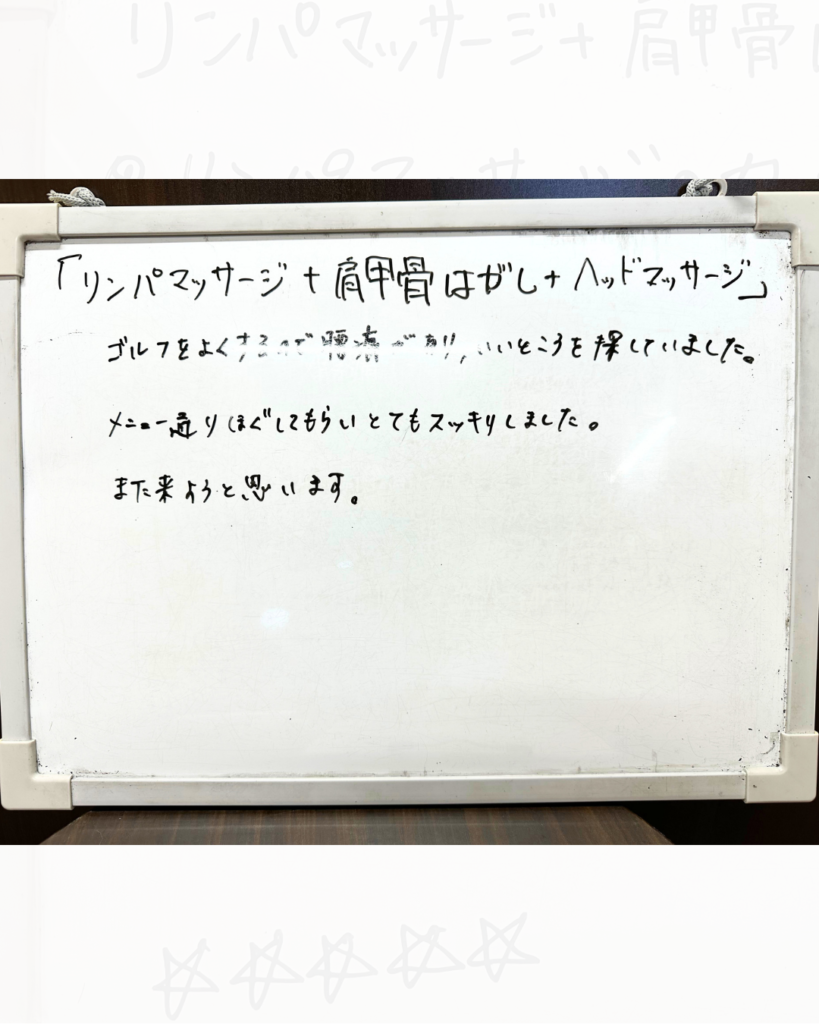 リンパマッサージ+肩甲骨
リンパマッサージ
「リンパマッサージ+肩甲骨はがし+ヘッドマッサージ」
ゴルフをよくするので腰痛があり、いいところを探していました。
メニュー通りほぐしてもらいとてもスッキリしました。
また来ようと思います。